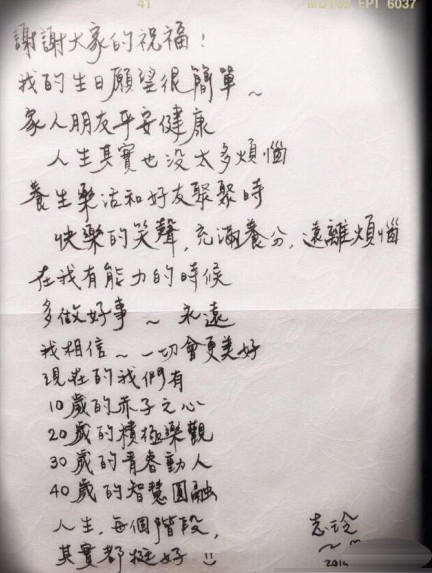 41
EPT 6037
謝謝大家的祝福!
我的生日願望很簡單~
家人朋友平安健康
人生其實也沒太多煩惱
養生樂活和好友聚聚時
快樂的笑聲,充滿養分,遠離煩惱
在我有能力的時候
多做好事~永遠
我相信~一切會更美好
現在的我們有
10歲的赤子之心
20歲的積極樂觀
30歲的青春動人
40歲的智慧圓融
人生,每個階段,
其實都挺好
志玲
2014